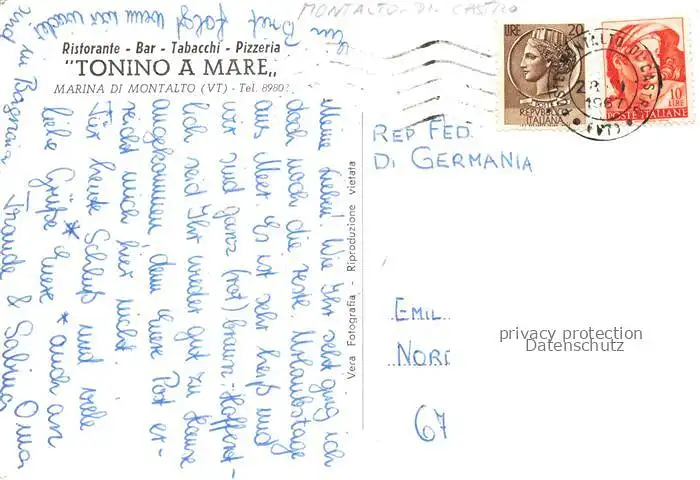 MONTALTO DI CASTRO
Ristorante - Bar - Tabacchi - Pizzeria
"TONINO A MARE„
MARINA DI MONTALTO (VT) - Tel. 8980
Meine Lieben! Wie Ihr seht ging ich
doch noch die restl. Urlaubstage
ans Meer. Es ist sehr heiß und
wir sind ganz (rot) braun. Hoffent-
lich seid Ihr wieder gut zu Hause
angekommen, denn Euere Post er-
reicht mich hier nicht.
Für heute Schluß und viele
liebe Grüße Euere * auch an
Traude & Sabina Oma
Ein Brief folgt wenn wir wieder
in Bayern
sind
Vera Fotografia - Riproduzione vietata
LIRE 20
REPVBBLICA
ITALIANA
10
LIRE
POSTE ITALIANE
MONTALTO DI CASTRO
1967
(VT)
REP. FED.
DI GERMANIA
EMIL
NORD
67
privacy protection
Datenschutz